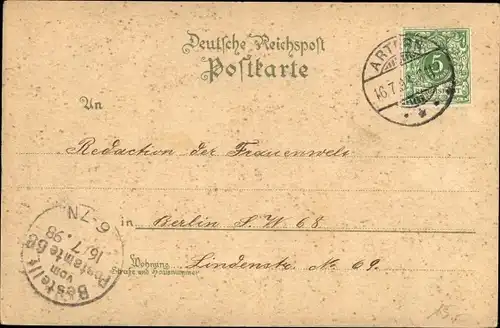 Deutsche Reichspost
Postkarte
ARTERN
16.7.
5
PFENNIG
An
Redaction der Frauenwelt
in Berlin S.W. 68
Wohnung
Straße und Hausnummer
Lindenstr. No 69.
Bestellt
vom
Postamte 68
16/7.98
6-7N